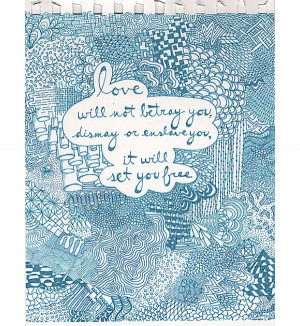 love
will not betray you,
dismay or enslave you,
it will
set you free